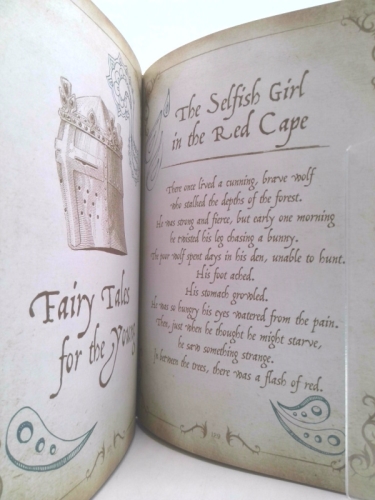 Fairy Tales
for the Young
The Selfish Girl
in the Red Cape
There once lived a cunning, brave wolf
who stalked the depths of the forest.
He was strong and fierce, but early one morning
he twisted his leg chasing a bunny.
The poor wolf spent days in his den, unable to hunt.
His foot ached.
His stomach growled.
He was so hungry his eyes watered from the pain.
Then, just when he thought he might starve,
he saw something strange.
In between the trees, there was a flash of red.